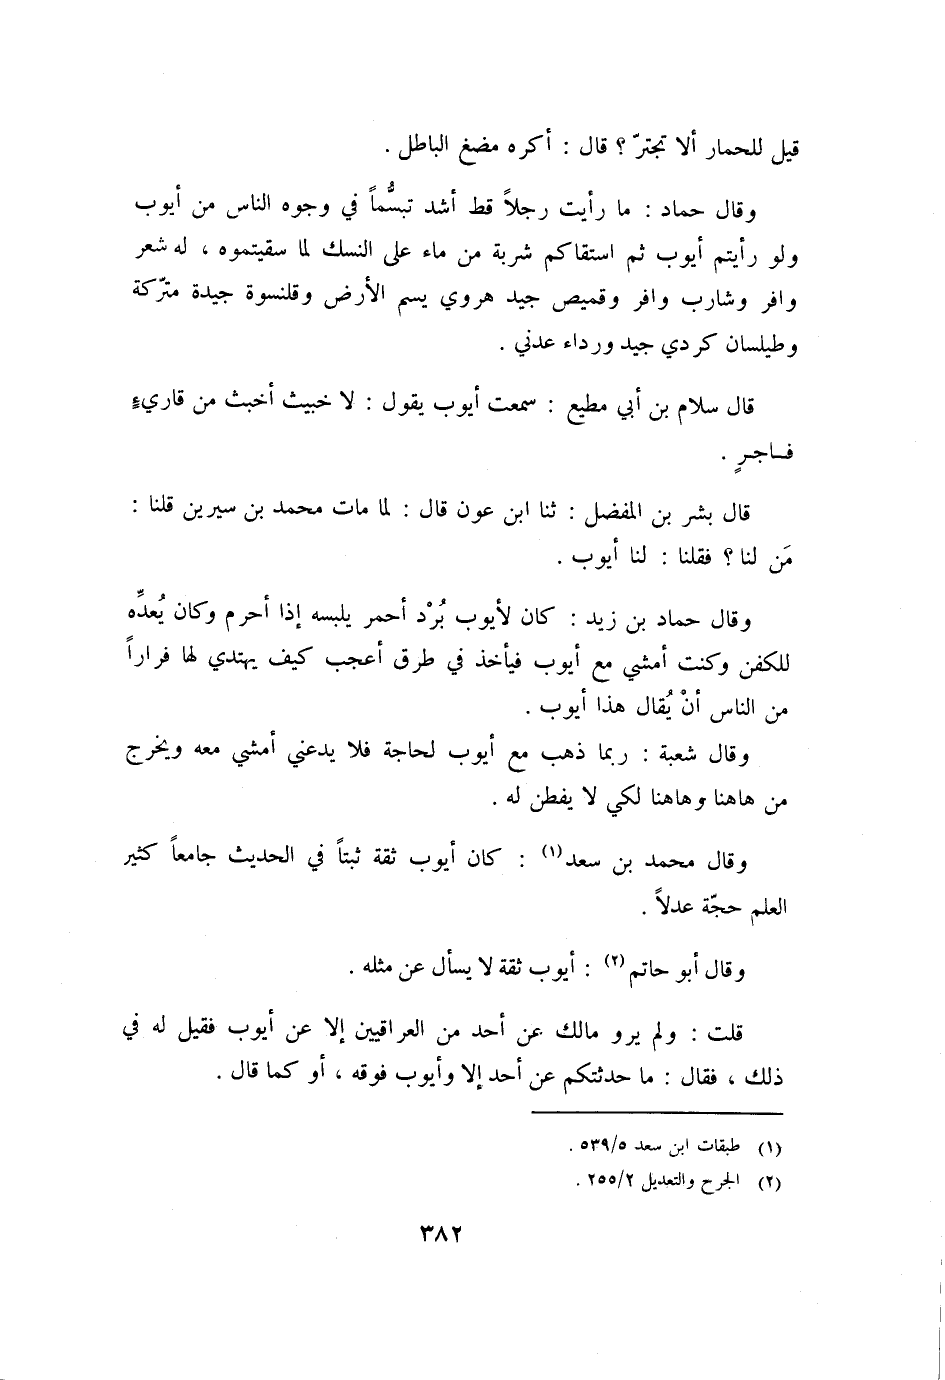 قيل للحمار ألا تجترّ ؟ قال : أكره مضغ الباطل .
وقال حماد : ما رأيت رجلاً قط أشد تبسُّماً في وجوه الناس من أيوب
ولو رأيتم أيوب ثم استقاكم شربة من ماء على النسك لما سقيتموه ، له شعر
وافر وشارب وافر وقميص جيد هروي يسم الأرض وقلنسوة جيدة متركة
وطيلسان كردي جيد ورداء عدني .
قال سلام بن أبي مطيع : سمعت أيوب يقول : لا خبيث أخبث من قاريءٍ
فاجرٍ .
قال بشر بن المفضل : ثنا ابن عون قال : لما مات محمد بن سيرين قلنا :
مَن لنا ؟ فقلنا : لنا أيوب .
وقال حماد بن زيد : كان لأيوب بُرْد أحمر يلبسه إذا أحرم وكان يُعدِّه
للكفن وكنت أمشي مع أيوب فيأخذ في طرق أعجب كيف يهتدي لها فراراً
من الناس أنْ يُقال هذا أيوب .
وقال شعبة : ربما ذهب مع أيوب لحاجة فلا يدعني أمشي معه ويخرج
من هاهنا وهاهنا لكي لا يفطن له .
وقال محمد بن سعد(١) : كان أيوب ثقة ثبتاً في الحديث جامعاً كثير
العلم حجّة عدلاً .
وقال أبو حاتم(٢) : أيوب ثقة لا يسأل عن مثله .
قلت : ولم يرو مالك عن أحد من العراقيين إلا عن أيوب فقيل له في
ذلك ، فقال : ما حدثتكم عن أحد إلا وأيوب فوقه ، أو كما قال .
(١) طبقات ابن سعد ٥٣٩/٥ .
(٢) الجرح والتعديل ٢٥٥/٢ .
٣٨٢